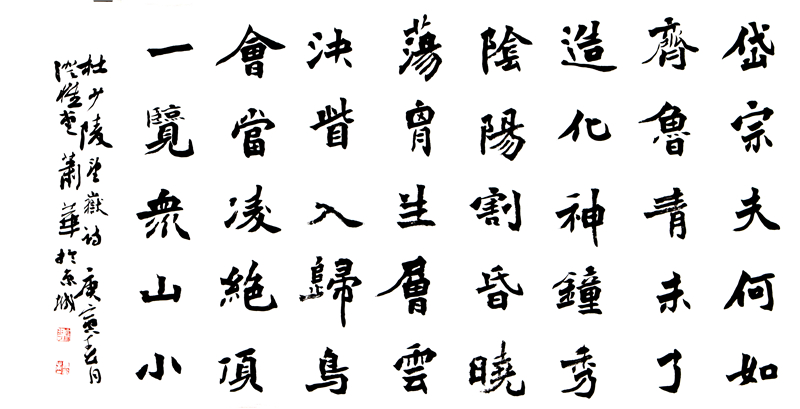 岱宗夫何如
齊魯青未了
造化神鐘秀
陰陽割昏曉
蕩胷生層雲
決眥入歸鳥
會當凌絕頂
一覽衆山小
杜少陵望嶽詩 庚寅月
蕭華於京城